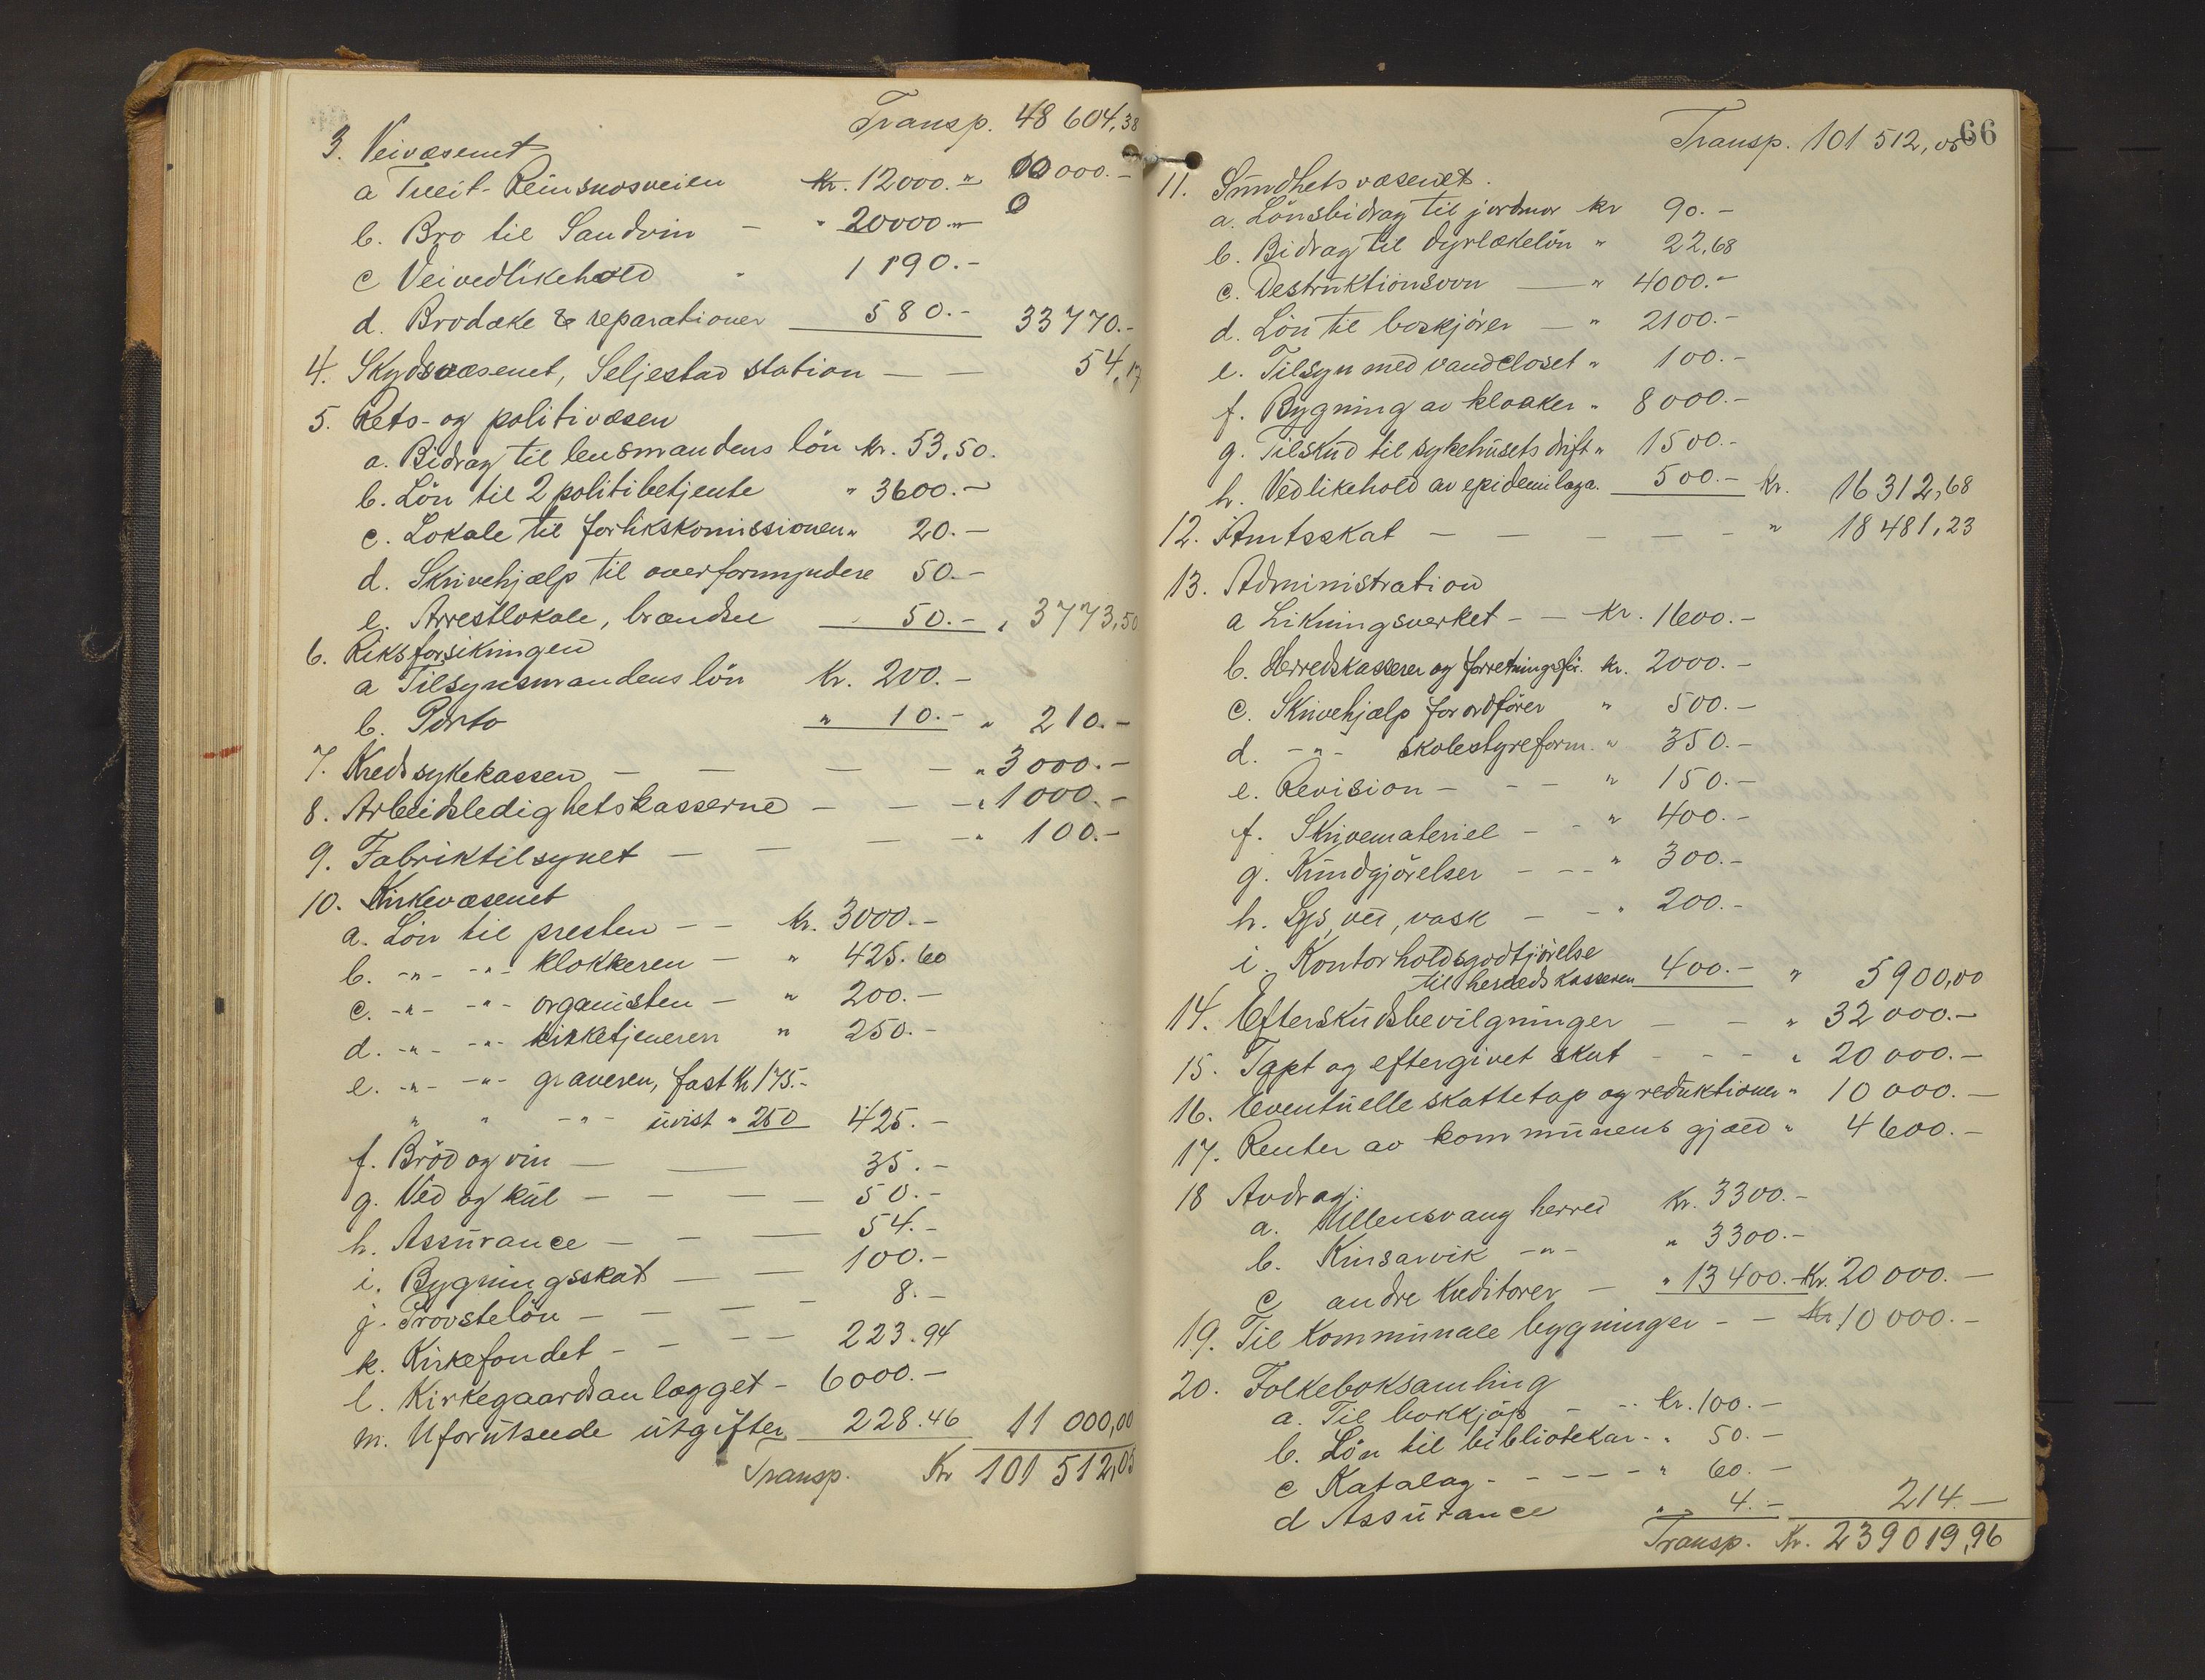 Transp. 48 604,38
3. Veivæsenet
a Tveit-Reinsnosveien Kr. 12000.- 10000.-
b. Bro til Sandvin - " 20000.- 0
c Veivedlikehold - 1190.-
d. Brodæke & reparationer 580.- 33770.-
4. Skydsvæsenet, Seljestad station — — 54,17
5. Rets- og politivæsen
a. Bidrag til lensmandens lön kr. 53,50.
b. Lön til 2 politibetjente " 3600.-
c. Lokale til forlikskomissionen " 20.-
d. Skrivehjælp til overformyndere 50.-
e. Arrestlokale, brændsel 50.- " 3773,50
6. Riksforsikringen
a Tilsynsmandens lön Kr. 200.-
b. Porto " 10.- " 210.-
7. Kredssykekassen — — — — " 3000.-
8. Arbeidsledighetskasserne — — — " 1000.-
9. Fabriktilsynet — — — — " 100.-
10. Kirkevæsenet
a. Lön til presten — — kr. 3000.-
b. -"- -"- klokkeren — " 425.60
c. -"- -"- organisten — " 200.-
d. -"- -"- kirketjeneren " 250.-
e. -"- -"- graveren, fast kr 175.-
" " -"- uvist " 250 425.-
f. Bröd og vin — — 35.-
g. Ved og kul — — — — 50.-
h. Assurance — — — 54.-
i. Bygningsskat — — 100.-
j. Provstelön — — — — 8.-
k. Kirkefondet — — — — 223.94
l. Kirkegaardsanlægget - 6000.-
m. Uforutseede utgifter 228.46 11 000,00
Transp. Kr 101 512,05
66
Transp. 101 512,05
11. Sundhetsvæsenet.
a. Lönsbidrag til jordmor kr 90.-
b. Bidrag til dyrlækelön " 22,68
c. Destruktionsovn — " 4000.-
d. Lön til boskjörer — " 2100.-
e. Tilsyn med vandcloset " 100.-
f. Bygning av kloaker " 8000.-
g. Tilskud til sykehusets drift " 1500.-
h. Vedlikehold av epidemilaga. 500.- Kr. 16 312,68
12. Amtsskat — — — — — " 18 481,23
13. Administration
a Likningsverket - — Kr. 1600.-
b. Herredskasserer og forretningsför. kr. 2000.-
c. Skrivehjælp for ordförer " 500.-
d. -"- skolestyreform. " 350.-
e. Revision - - — " 150.-
f. Skrivemateriel - - " 400.-
g. Kundgjörelser - - - " 300.-
h. Lys, ved, vask - - " 200.-
i. Kontorholdsgodtjörelse
til herredskasseren 400.- " 5900,00
14. Efterskudsbevilgninger — — " 32 000.-
15. Tapt og eftergivet skat - - - " 20 000.-
16. Eventuelle skattetap og reduktioner " 10 000.-
17. Renter av kommunens gjæld " 4600.-
18 Avdrag:
a. Ullensvang herred Kr. 3300.-
b. Kinsarvik -"- " 3300.-
c andre kreditorer — " 13400.- Kr. 20 000.-
19. Til kommunale bygninger - — Kr. 10 000.-
20. Folkeboksamling
a. Til bokkjöp - - kr. 100.-
b. Lön til bibliotekar - " 50.-
c Katalog - - - - - " 60.-
d Assurance " 4.- 214.-
Transp. Kr. 239019,96